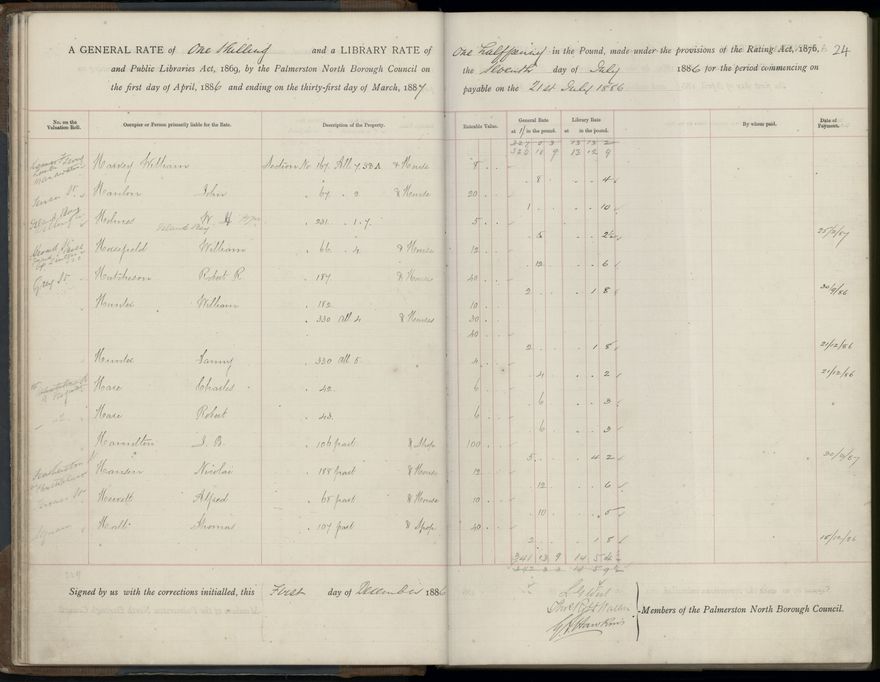 A GENERAL RATE of One Shilling and a LIBRARY RATE of One halfpenny in the Pound, made under the provisions of the Rating Act, 1876, 24
and Public Libraries Act, 1869, by the Palmerston North Borough Council on the Seventh day of July 1886 for the period commencing on
the first day of April, 1886 and ending on the thirty-first day of March, 1887 payable on the 21st July 1886
No. on the Valuation Roll. Occupier or Person primarily liable for the Rate. Description of the Property. Rateable Value. General Rate at 1/ in the pound. Library Rate at in the pound. By whom paid. Date of Payment.
327 0 3 13 13 2
322 18 9 13 12 9
William Section No 167 All 7.32A & House 8
8 4
Hanlon John 67 2 & House 20
1 10
Holmes W. H 231 1.7. 5
Island Bay
5 2½ 25/3/87
William 66 4 & House 12
12 6
Grey St Hutcheson Robert R. 187 & House 40
2 1 8 30/9/86
Hunter William 182 10
330 All 4 & House 30
40
2 1 8 21/12/86
Hunter Fanny 330 All 5 4
4 2 21/12/86
Hare Charles 42 6
6 3
Hare Robert 43 6
6 3
Hamilton J. B. 106 part & Shop 100
5 4 2 30/3/87
Hansen Nicolai 188 part & House 12
12 6
Alfred 68 part & House 10
10 5
Thomas 107 part & Shop 40
2 1 8 15/12/86
341 13 9 14 5 4½
342 3 3 14 5 9½
Signed by us with the corrections initialled, this First day of December 1886
Members of the Palmerston North Borough Council.